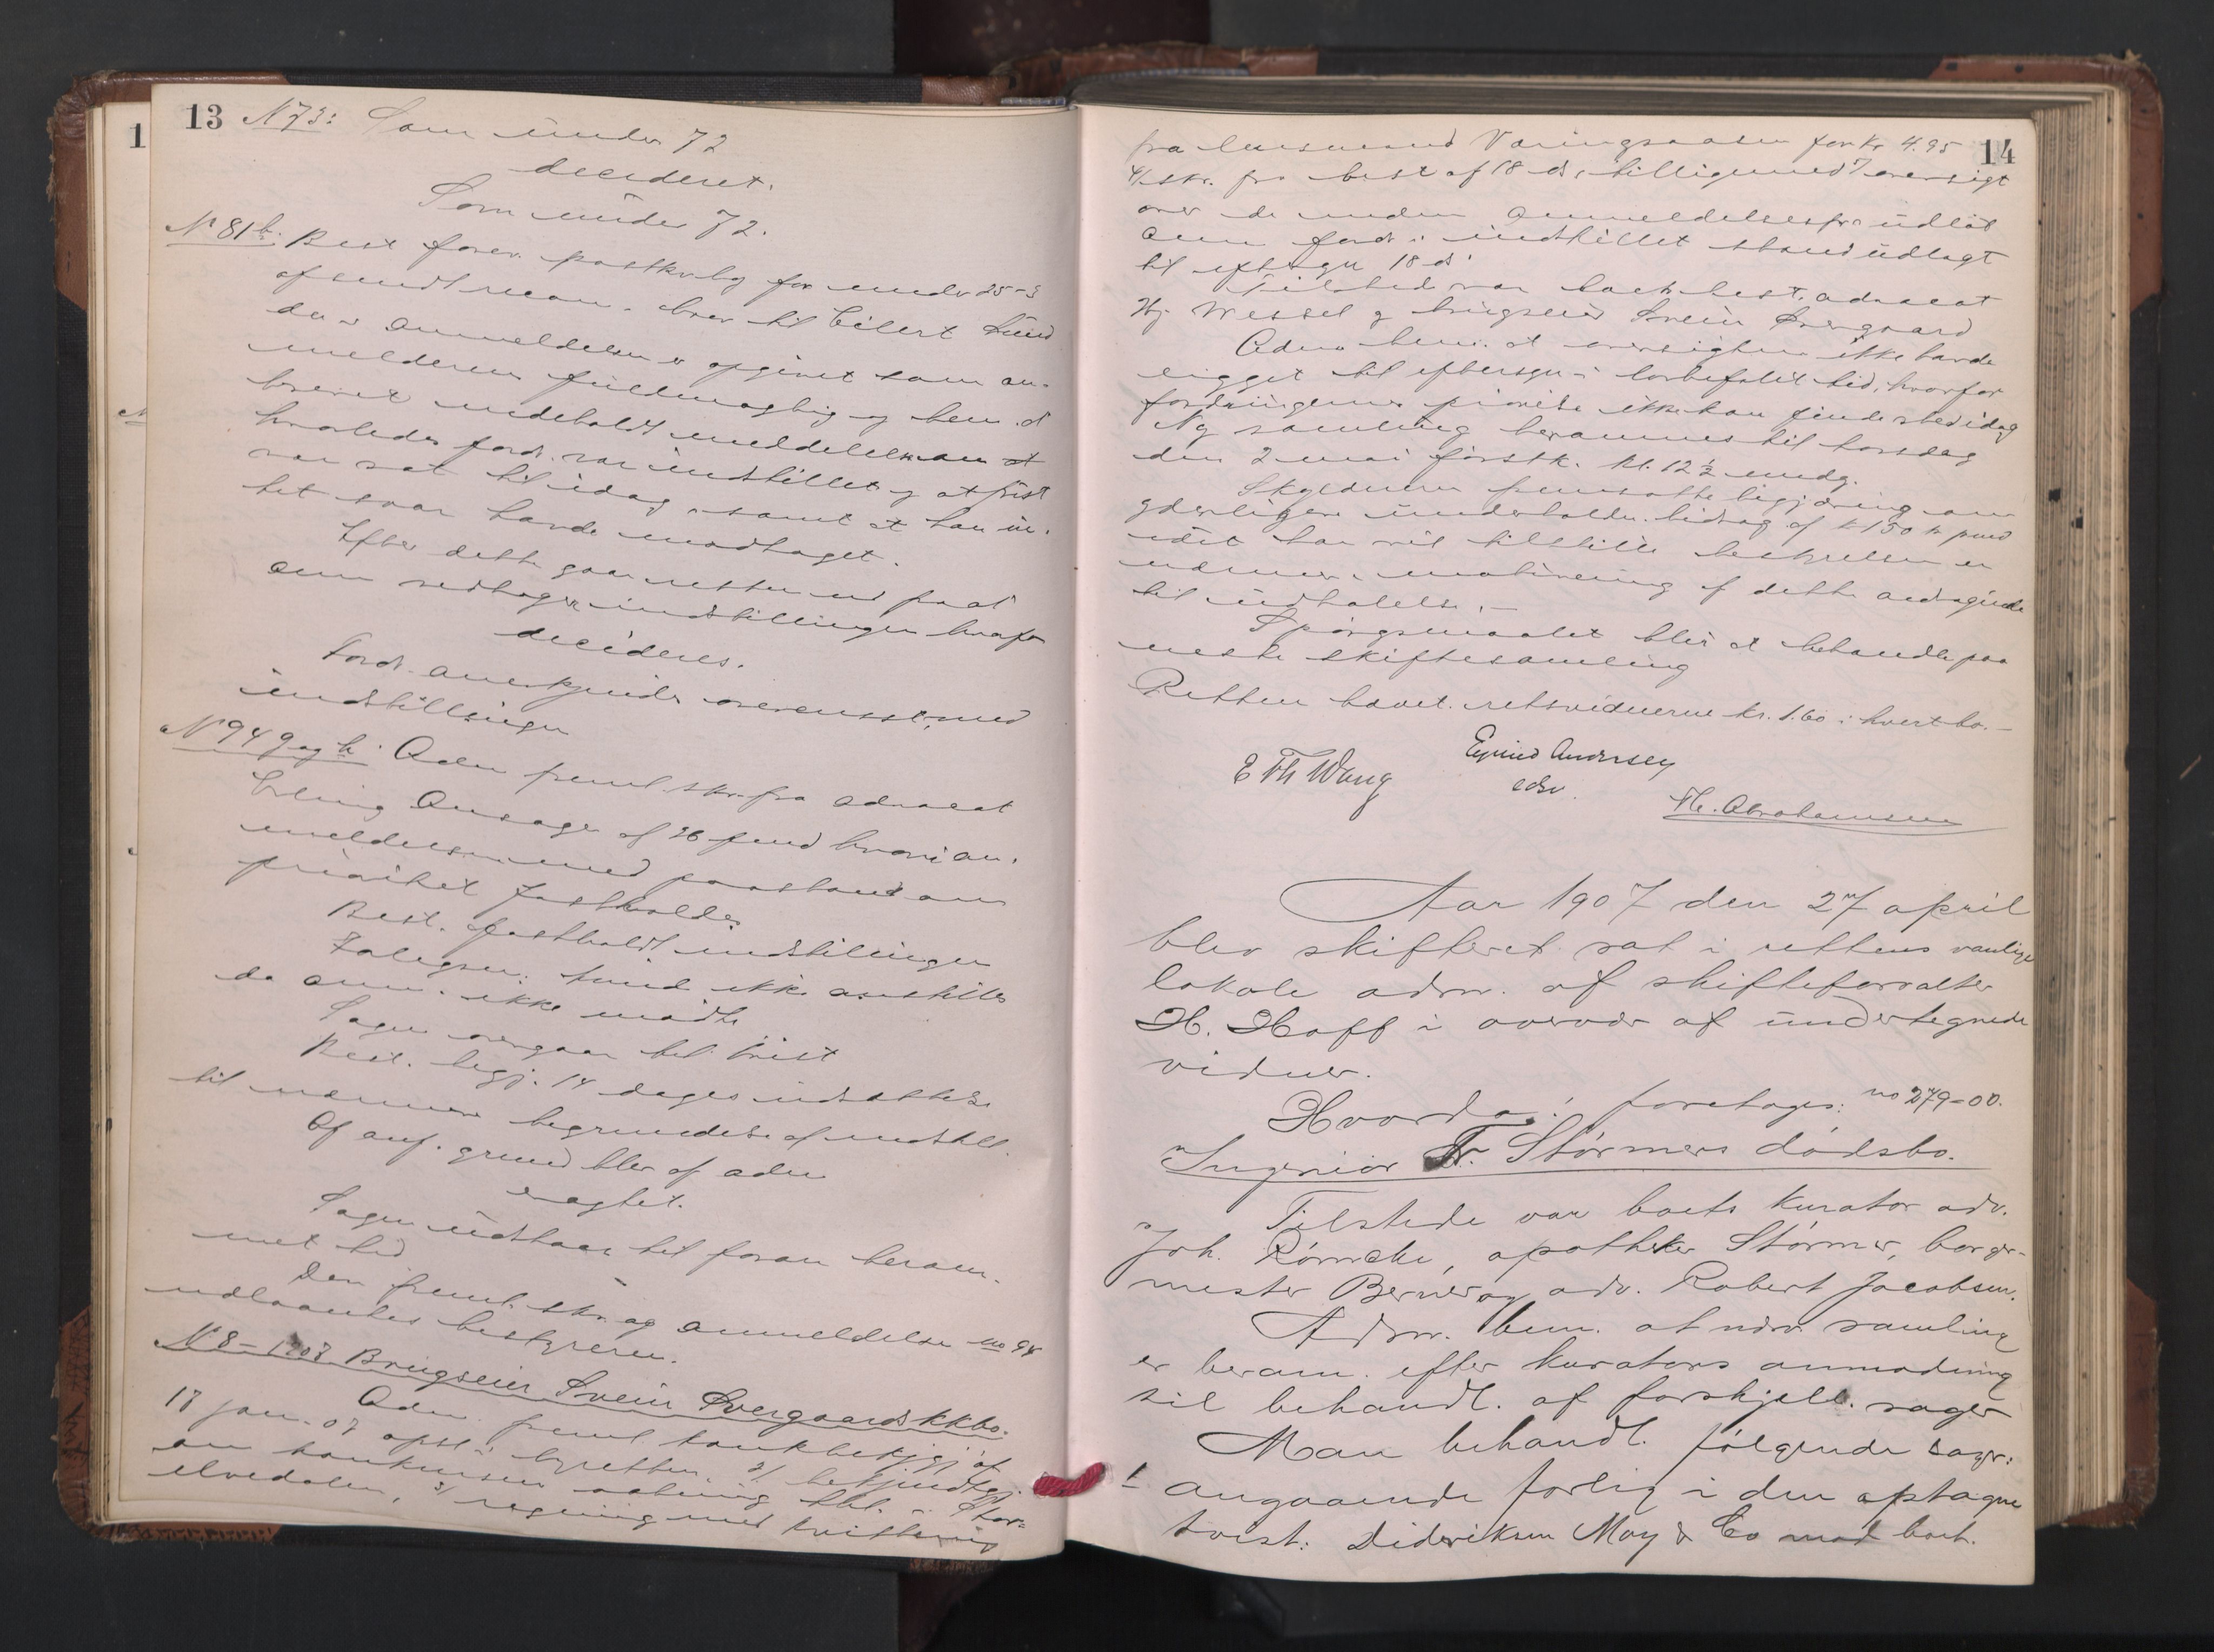 13
N 73: Som under 72
decideret.
Som under 72.
N 81 b. Best. forev. postkvtg for under 25-3
afsendt recom. brev til Eilert Sund
der i anmeldelsen er opgivet som an-
melderens fuldmægtig og bem. at
brevet indeholdt meddelelse om at
hvorledes ford. var indstillet og at frist
var sat til idag, samt at han in-
tet svar havde modtaget.
Efter dette gaar retten ud fra at
anm vedtager indstillingen hvorfor
decideres.
Ford. anerkjendes overensst. med
indstillingen
N 94 g og h. Adm freml. skr. fra advocat
Erling Ansager af 26 hvori an-
meldelsen med paastand om
prioritet fastholdes.
Best. fastholdt indstillingen
Forligsm. kunde ikke anstilles
da anm. ikke mødte
Sagen overgaar til tvist
Best. begj. 14 dages udsættelse
til nærmere begrundelse af indstill.
Af anf. grund blev af adm
vagtet.
Sagen udstaar til foran beram-
met tid
Den freml. skr. og anmeldelse no 94
udlaantes bestyreren.
N 8-1907 Brugseier Svein Overgaards kkbo.
Adm. freml. konkbekjgj. af
18 jan. 07 opsl. i byretten, bekjendtgj.
om konkursens aabning bl. i Stor-
elvedalen, regning med kvittering
14
fra lensmand Vaaringsaasen for kr 4.95
4/ skr. fra best af 18 ds. tilligemed oversigt
over de inden anmeldelsesfr. udløb
anm ford. i indstillet stand udlagt
til eftersyn 18 ds
Tilstede var boets best. advocat
Hj. Wessel og brugseier Svein Overgaard
Adm. bem. at oversigten ikke havde
ligget til eftersyn i lovbefalet tid, hvorfor
fordringernes prøvelse ikke kan finde sted idag
Ny samling berammes til torsdag
den 2 mai førstk. kl. 12 1/2 emdg.
Skyldneren fremsatte begjæring om
yderligere underholdn. bidrag af kr 150 kr pmd
idet han vil tilstille bestyrelsen en
nærmere motivering af dette andragende
til udtalelse.-
Spørgsmaalet blir at behandle paa
neste skiftesamling
Retten hævet. retsvidnerne kr. 1.60 i hvert bo.-
E Th Wang
Eyvind Andersen
edsv.
Th. Abrahamsen
Aar 1907 den 27 april
blev skifteret sat i rettens vanlige
lokale adm. af skifteforvalter
H. Hoff i overvær af undertegnede
vidner.
Hvorda: foretoges: no 279-00.
Ingeniør Fr. Størmers dødsbo.
Tilstede var boets kurator adv.
Joh. Rømcke, apotheker Størmer, borger-
mester Berner og adv. Robert Jacobsen.
Adm. bem. at nærv. samling
er beram. efter kurators anmodning
til behandl. af forskjell. sager
Man behandl. følgende sager:
1 angaaende forlig i den optagne
tvist: Dideriksen May & Co mod boet.